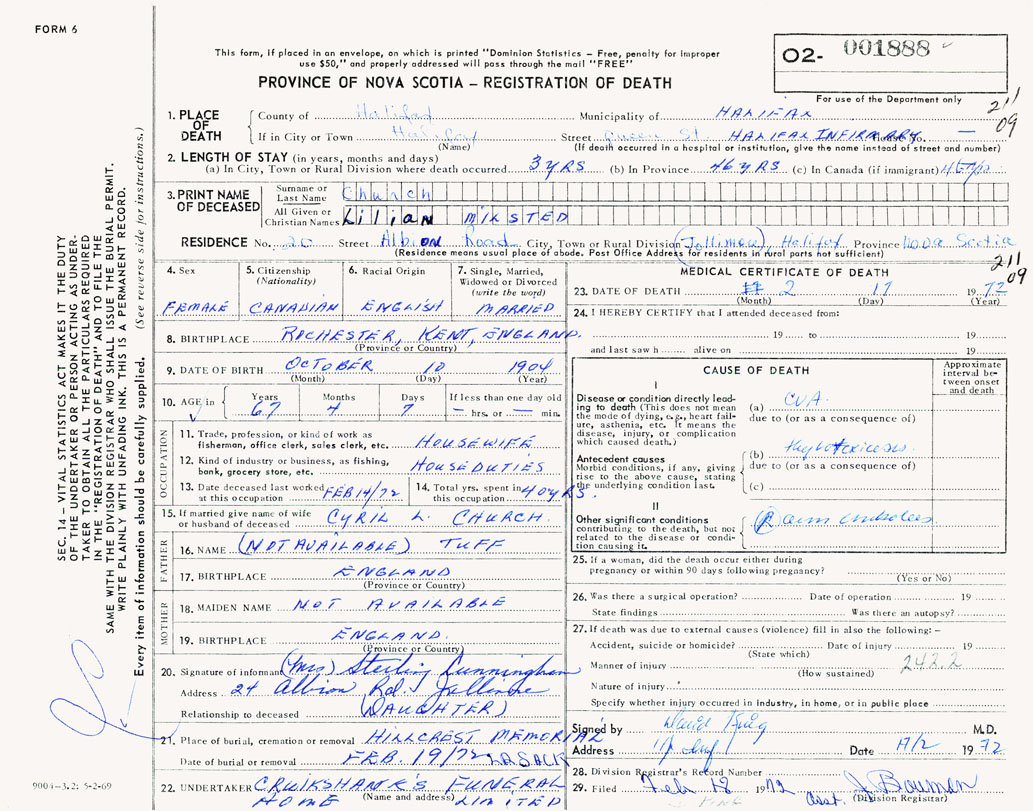 FORM 6
This form, if placed in an envelope, on which is printed "Dominion Statistics – Free, penalty for improper
use $50," and properly addressed will pass through the mail "FREE"
O2- 001888
PROVINCE OF NOVA SCOTIA – REGISTRATION OF DEATH
For use of the Department only
211
09
1. PLACE OF DEATH
County of Halifax Municipality of HALIFAX
If in City or Town Halifax Street Queen St. HALIFAX INFIRMARY House No. –
(Name) (If death occurred in a hospital or institution, give the name instead of street and number)
2. LENGTH OF STAY (in years, months and days)
(a) In City, Town or Rural Division where death occurred 3 YRS (b) In Province 46 YRS (c) In Canada (if immigrant)
3. PRINT NAME OF DECEASED
Surname or Last Name Church
All Given or Christian Names Lilian MILSTED
RESIDENCE No. 20 Street Albion Road City, Town or Rural Division (Jollimore), Halifax Province Nova Scotia
(Residence means usual place of abode. Post Office Address for residents in rural parts not sufficient)
211
09
4. Sex
FEMALE
5. Citizenship
(Nationality)
CANADIAN
6. Racial Origin
ENGLISH
7. Single, Married,
Widowed or Divorced
(write the word)
MARRIED
8. BIRTHPLACE ROCHESTER, KENT, ENGLAND.
(Province or Country)
9. DATE OF BIRTH OCTOBER 10 1904
(Month) (Day) (Year)
10. AGE in Years Months Days If less than one day old
67 4 7 – hrs. or – min.
OCCUPATION
11. Trade, profession, or kind of work as
fisherman, office clerk, sales clerk, etc. HOUSEWIFE
12. Kind of industry or business, as fishing,
bank, grocery store, etc. HOUSE DUTIES
13. Date deceased last worked
at this occupation FEB 14/72
14. Total yrs. spent in
this occupation 40 YRS.
15. If married give name of wife
or husband of deceased CYRIL L. CHURCH.
FATHER
16. NAME (NOT AVAILABLE) TUFF
17. BIRTHPLACE ENGLAND
(Province or Country)
MOTHER
18. MAIDEN NAME NOT AVAILABLE
19. BIRTHPLACE ENGLAND.
(Province or Country)
20. Signature of informant (Mrs) Sterling Cunningham
Address 24 Albion Rd. Jollimore
Relationship to deceased (DAUGHTER)
21. Place of burial, cremation or removal HILLCREST MEMORIAL
Date of burial or removal FEB. 19/72
22. UNDERTAKER CRUIKSHANK'S FUNERAL
HOME (Name and address) LIMITED
MEDICAL CERTIFICATE OF DEATH
23. DATE OF DEATH 2 17 1972
(Month) (Day) (Year)
24. I HEREBY CERTIFY that I attended deceased from:
19 to 19
and last saw h alive on 19
CAUSE OF DEATH
Approximate
interval be-
tween onset
and death
I
Disease or condition directly lead-
ing to death (This does not mean
the mode of dying, e.g., heart fail-
ure, asthenia, etc. It means the
disease, injury, or complication
which caused death.)
(a) CVA.
due to (or as a consequence of)
Antecedent causes
Morbid conditions, if any, giving
rise to the above condition, stating
the underlying condition last.
(b) thyrotoxicosis.
due to (or as a consequence of)
(c)
II
Other significant conditions
contributing to the death, but not
related to the disease or condi-
tion causing it.
(R) arm embolus
25. If a woman, did the death occur either during
pregnancy or within 90 days following pregnancy?
(Yes or No)
26. Was there a surgical operation? Date of operation 19
State findings Was there an autopsy?
27. If death was due to external causes (violence) fill in also the following: –
Accident, suicide or homicide? Date of injury 19
(State which)
Manner of injury 242.2
(How sustained)
Nature of injury
Specify whether injury occurred in industry, in home, or in public place
Signed by David King M.D.
Address Date 17/2 1972
28. Division Registrar's Record Number
29. Filed Feb 18 1972 Asst. J. Bauman
(Division Registrar)
SEC. 14 – VITAL STATISTICS ACT MAKES IT THE DUTY
OF THE UNDERTAKER OR PERSON ACTING AS UNDER-
TAKER TO OBTAIN ALL THE PARTICULARS REQUIRED
IN THE "REGISTRATION OF DEATH" AND TO FILE THE
SAME WITH THE DIVISION REGISTRAR WHO SHALL ISSUE THE BURIAL PERMIT.
WRITE PLAINLY WITH UNFADING INK. THIS IS A PERMANENT RECORD.
Every item of information should be carefully supplied. (See reverse side for instructions.)
9004-3.2: 5-2-69